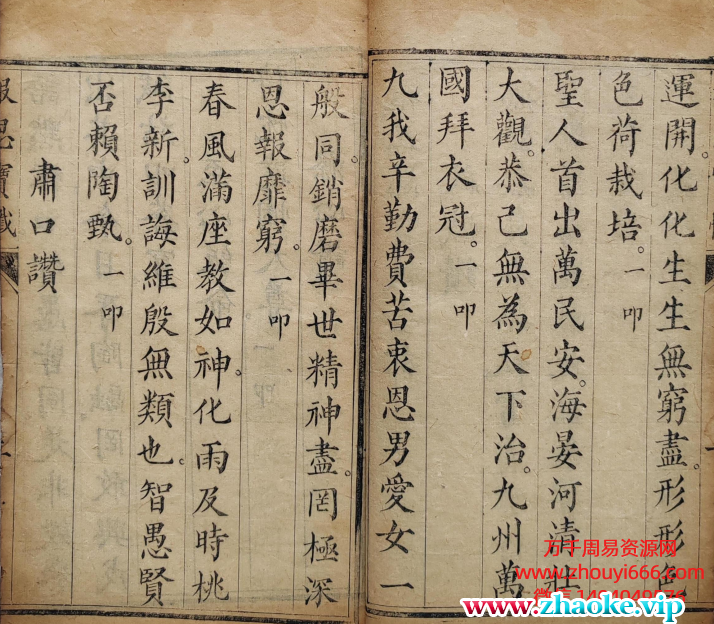 運開。化化生生無窮盡。形形色
色荷栽培。一叩
聖人首出萬民安。海晏河清壯
大觀。恭己無為天下治。九州萬
國拜衣冠。一叩
九我辛勤費苦衷恩男愛女一
般同。銷磨畢世精神盡。罔極深
恩報靡窮。一叩
春風滿座教如神。化雨及時桃
李新。訓誨維殷無類也。智愚賢
否賴陶甄。一叩
肅口讚
報恩寶懺
万千周易资源网
www.zhouyi666.com
微信
www.zhaoke.vip